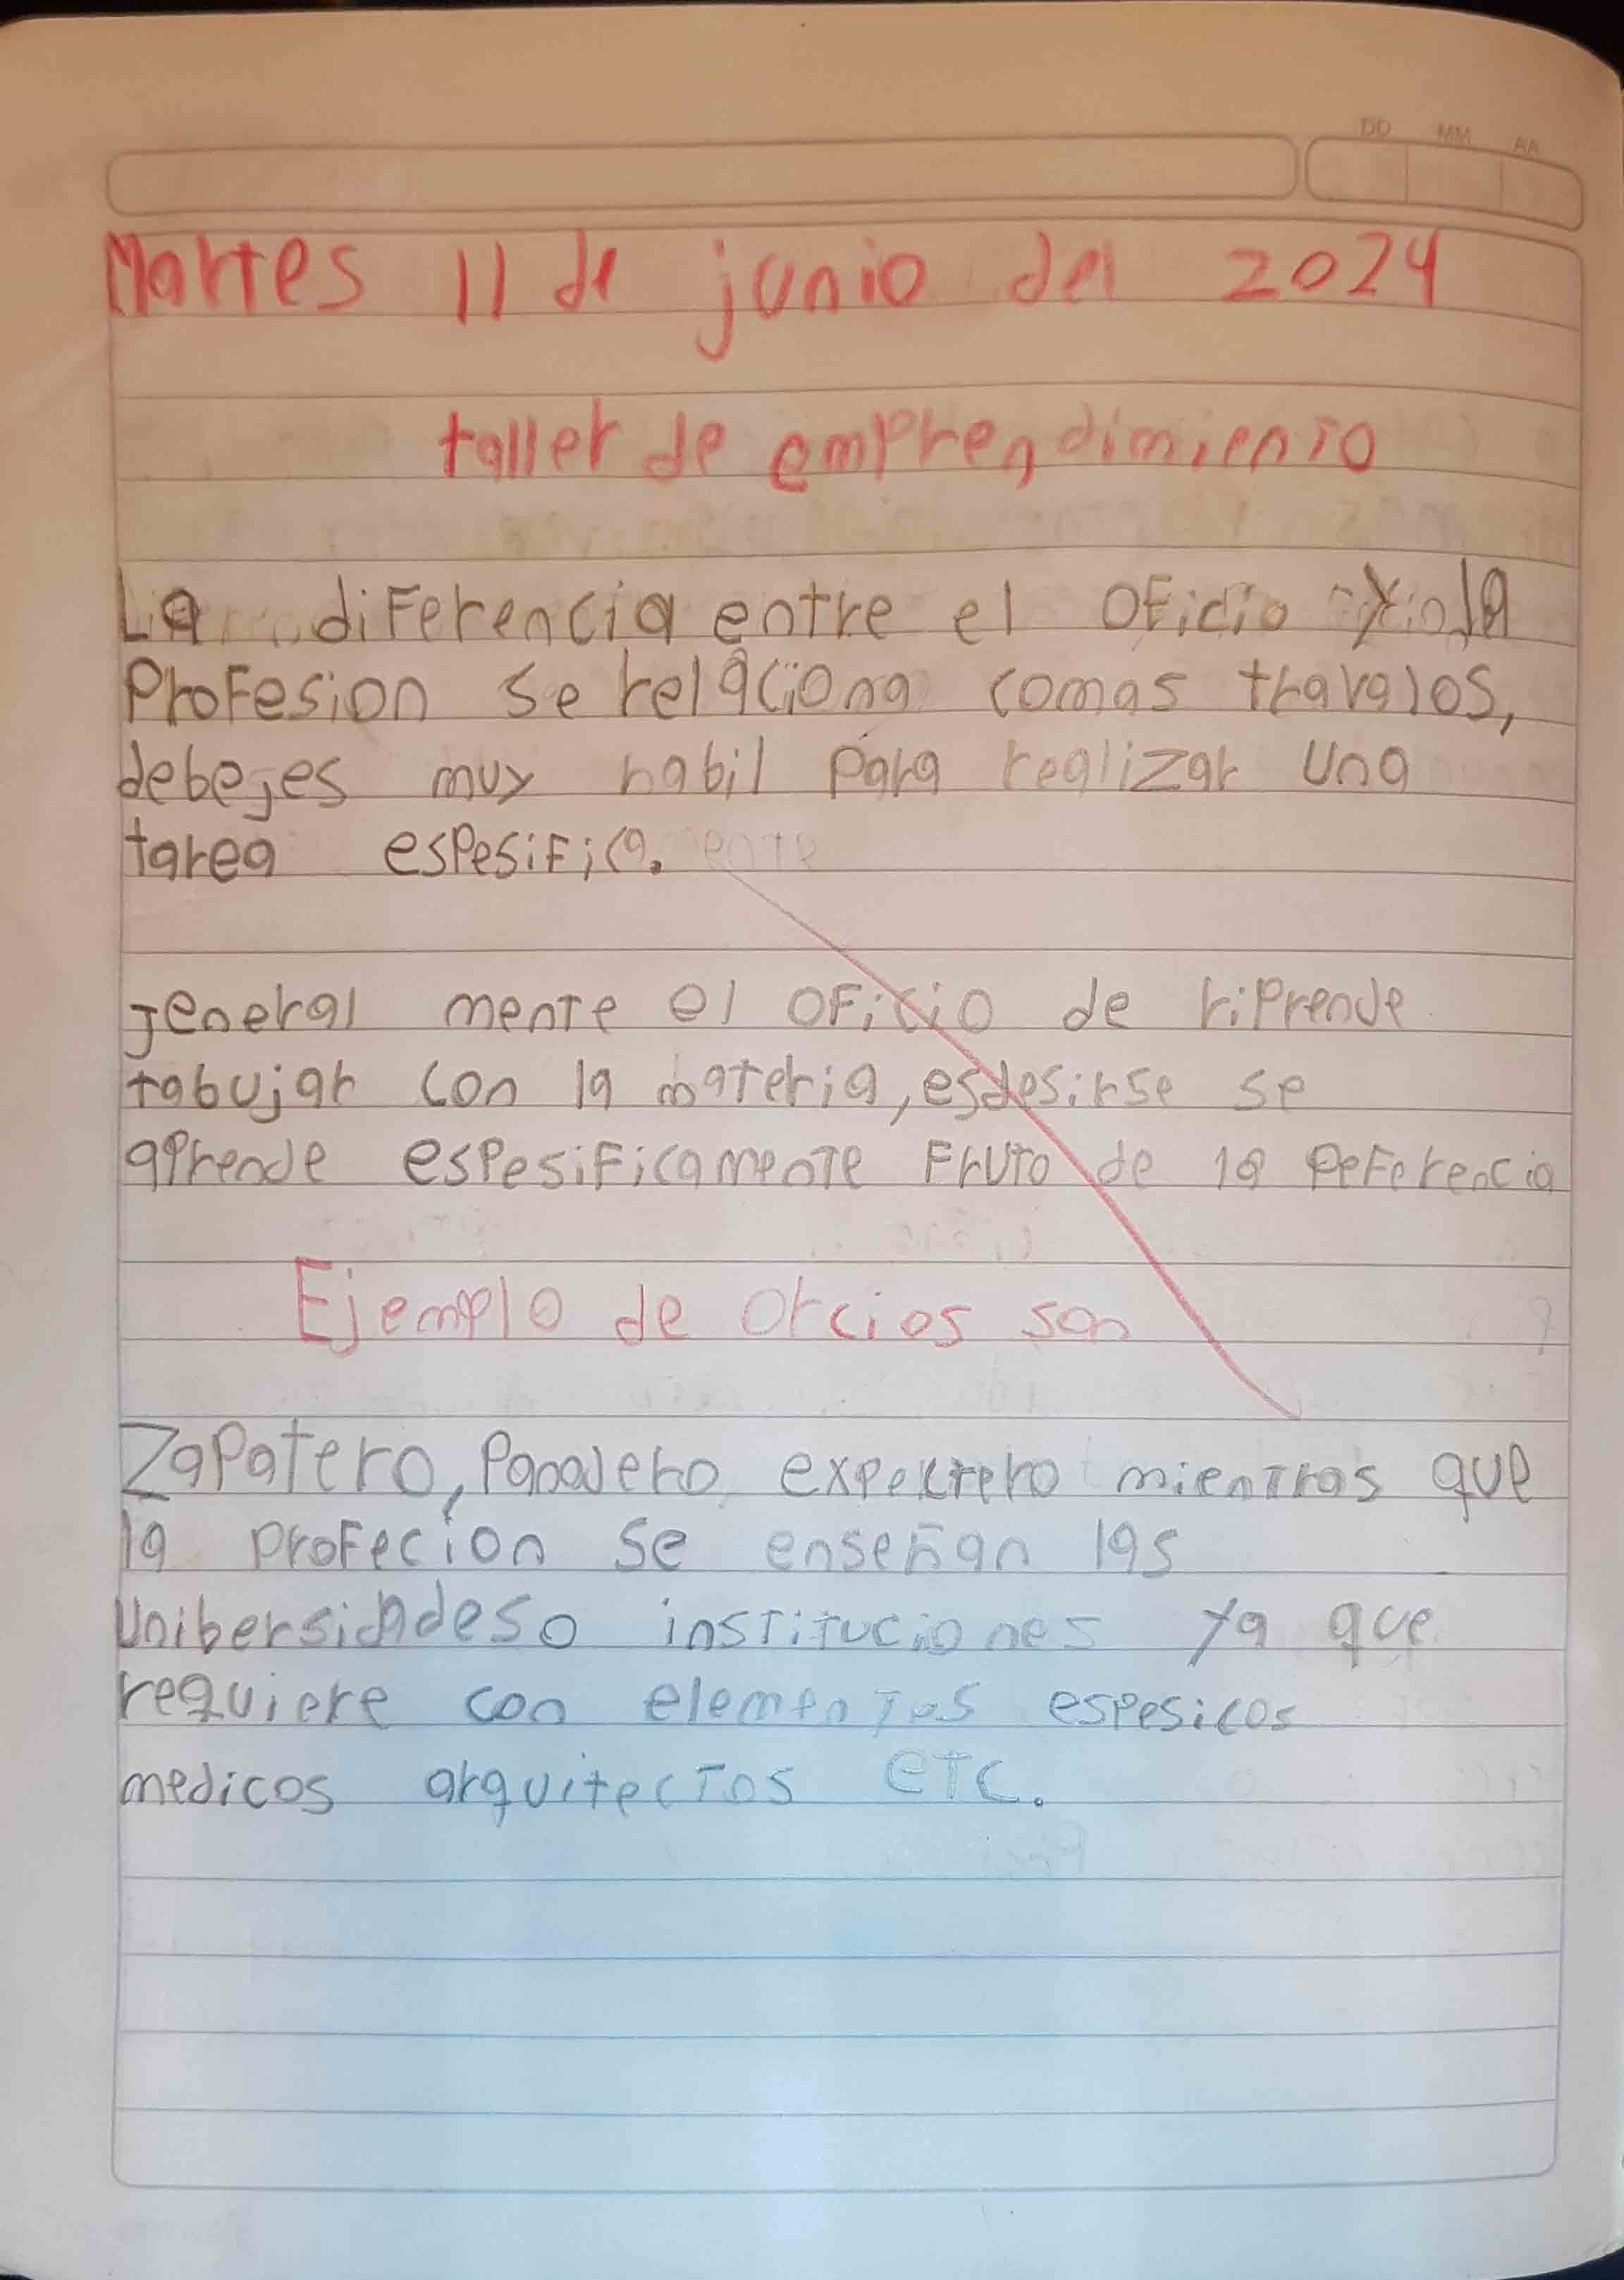 DD MM AA
Martes 11 de junio del 2024
taller de emprendimiento
La diferencia entre el oficio y la
Profesion se relaciona comas travalos,
debejes muy habil para realizar una
tarea espesifica.
jeneral mente el oficio de riprende
tabujar con la materia, esdesirse se
aprende espesificamente fruto de la peferencia
Ejemplo de orcios son
Zapatero, Panadero, mientras que
la profecion se enseñan las
Unibersidades o instituciones ya que
requiere con elementos espesicos
medicos arquitectos etc.